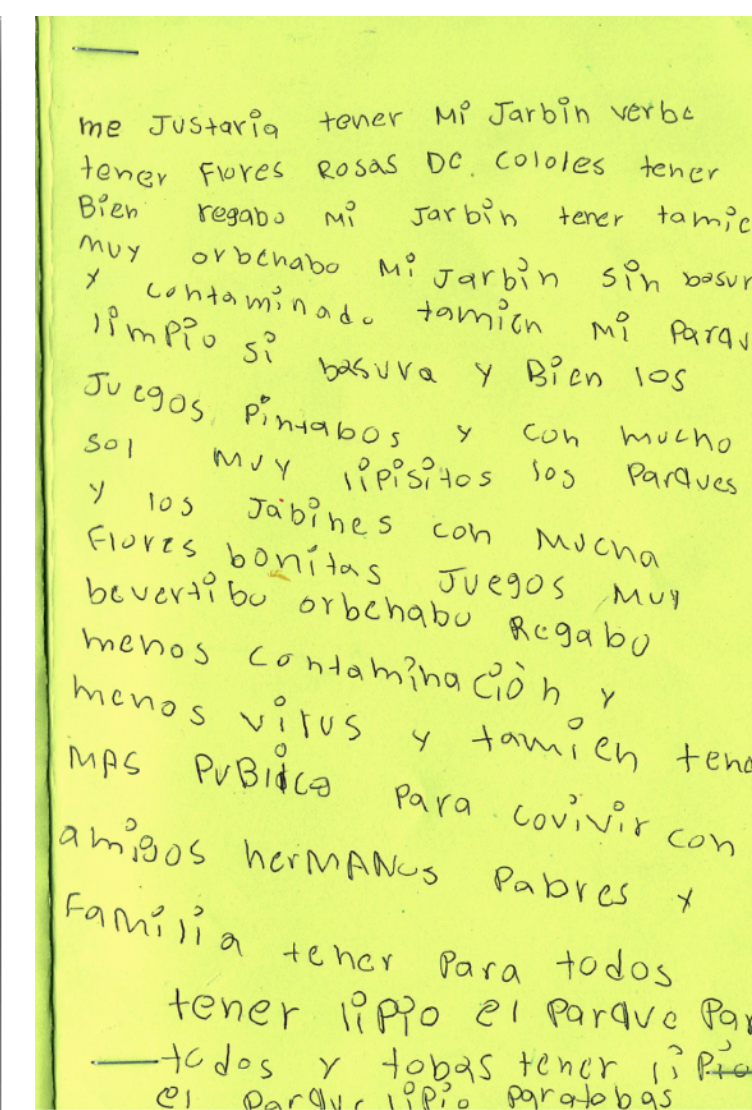 me Justaria tener Mi Jarbin verbe
tener Flores ROSAS DC. Cololes tener
Bien regabo Mi Jarbin tener tamic
muy orbenabo Mi Jarbin sin basur
y contaminado tamien Mi Parqu
limpio si basura y Bien los
Juegos Pintabos y con mucho
sol muy lipisitos los Parques
y los Jabines con Mucha
Flores bonitas Juegos Muy
bevertibo orbenabo Regabo
menos contaminaciòn y
menos virus y tamien tene
MAS PUBlico Para covivir con
amigos herMANos Pabres y
Familia tener Para todos
tener lipio el Parque Par
todos y tobas tener lipio
el Parque lipio paratobas